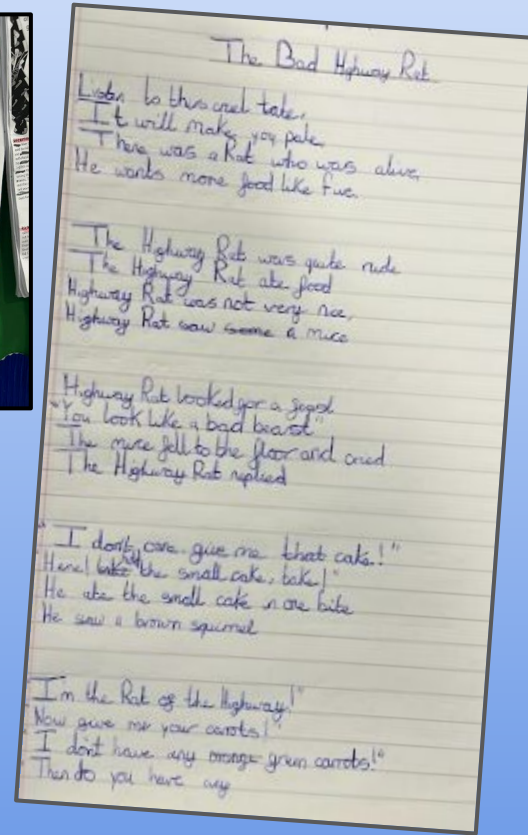 The Bad Highway Rat
Listen to this cruel tale,
It will make you pale,
There was a Rat who was alive,
He wants more food like five.
The Highway Rat was quite rude
The Highway Rat ate food
Highway Rat was not very nice,
Highway Rat saw a mice
Highway Rat looked for a feast
"You look like a bad beast"
The mice fell to the floor and cried
The Highway Rat replied
"I don't care give me that cake!"
Here! the small cake, take!"
He ate the small cake in one bite
He saw a brown squirrel
"I'm the Rat of the Highway!"
"Now give me your carrots!"
"I don't have any green carrots!"
"Then do you have any